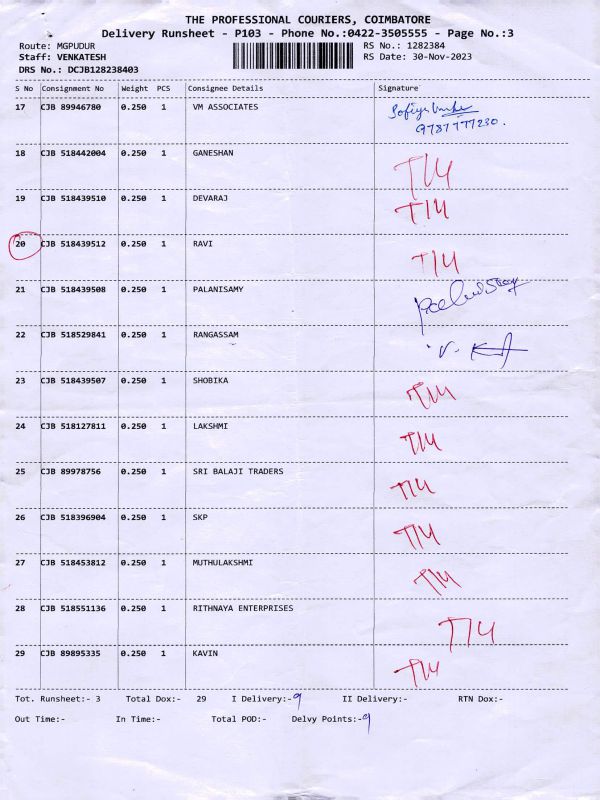 THE PROFESSIONAL COURIERS, COIMBATORE
Delivery Runsheet - P103 - Phone No.:0422-3505555 - Page No.:3
Route: MGPUDUR RS No.: 1282384
Staff: VENKATESH RS Date: 30-Nov-2023
DRS No.: DCJB128238403
S No Consignment No Weight PCS Consignee Details Signature
17 CJB 89946780 0.250 1 VM ASSOCIATES
9787777230.
18 CJB 518442004 0.250 1 GANESHAN T/4
19 CJB 518439510 0.250 1 DEVARAJ T/4
20 CJB 518439512 0.250 1 RAVI T/4
21 CJB 518439508 0.250 1 PALANISAMY
22 CJB 518529841 0.250 1 RANGASSAM
23 CJB 518439507 0.250 1 SHOBIKA T/4
24 CJB 518127811 0.250 1 LAKSHMI T/4
25 CJB 89978756 0.250 1 SRI BALAJI TRADERS T/4
26 CJB 518396904 0.250 1 SKP T/4
27 CJB 518453812 0.250 1 MUTHULAKSHMI T/4
28 CJB 518551136 0.250 1 RITHNAYA ENTERPRISES T/4
29 CJB 89895335 0.250 1 KAVIN T/4
Tot. Runsheet:- 3 Total Dox:- 29 I Delivery:- 9 II Delivery:- RTN Dox:-
Out Time:- In Time:- Total POD:- Delvy Points:- 9